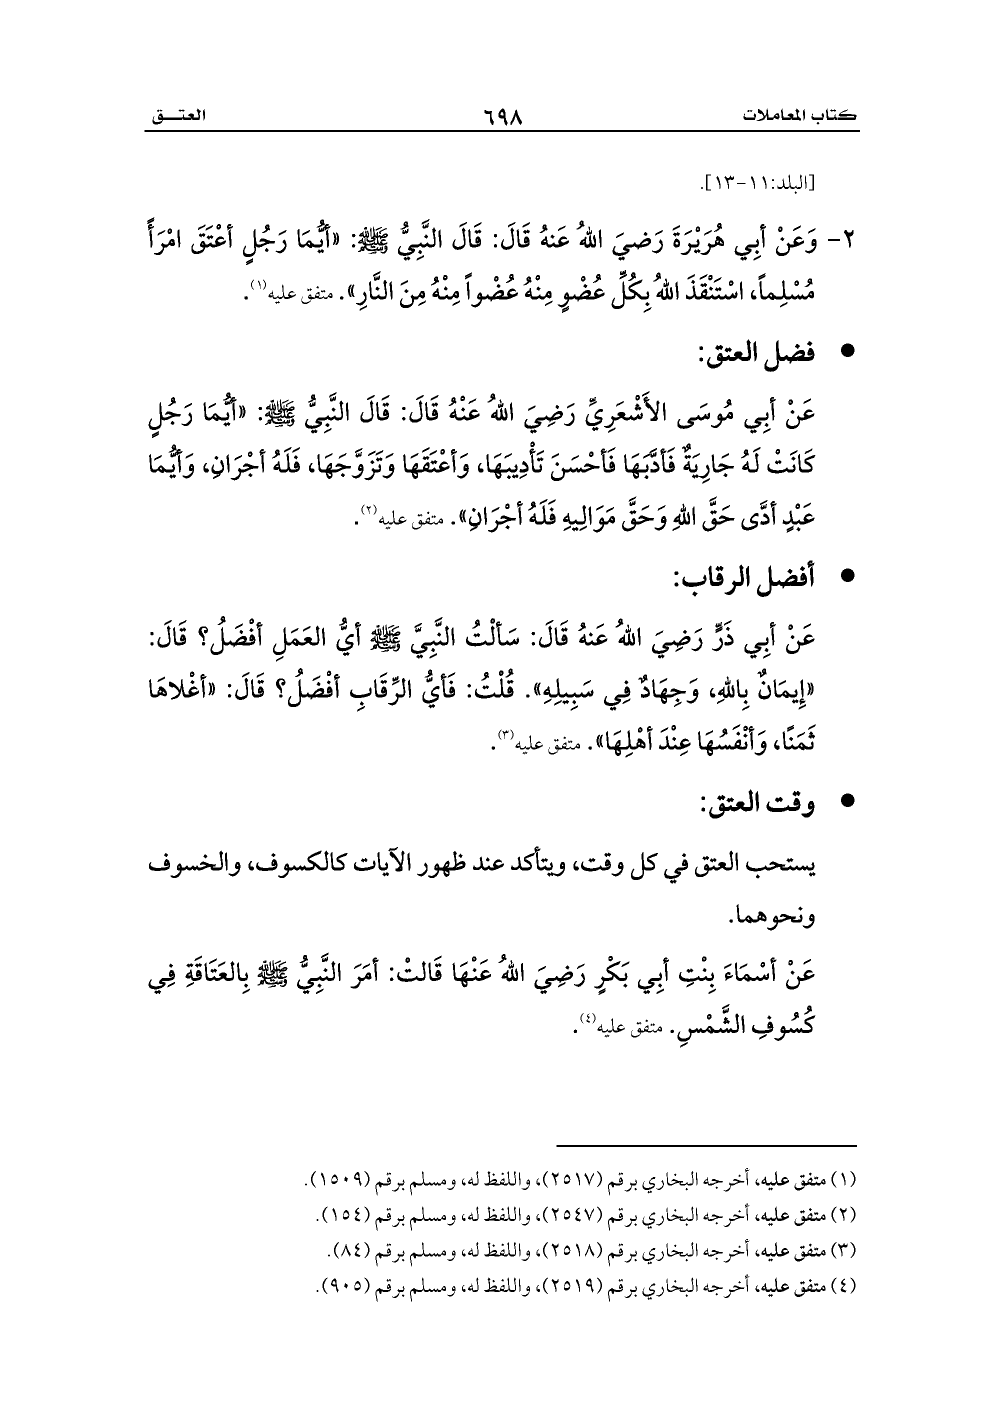 كتاب المعاملات ٦٩٨ العتـــق
[البلد:١١-١٣].
٢- وَعَنْ أبِي هُرَيْرَةَ رَضيَ اللهُ عَنهُ قَالَ: قَالَ النَّبِيُّ ﷺ: «أيُّمَا رَجُلٍ أعْتَقَ امْرَأً
مُسْلِماً، اسْتَنْقَذَ اللهُ بِكُلِّ عُضْوٍ مِنْهُ عُضْواً مِنْهُ مِنَ النَّارِ». متفق عليه(١).
● فضل العتق:
عَنْ أبِي مُوسَى الأَشْعَرِيِّ رَضِيَ اللهُ عَنْهُ قَالَ: قَالَ النَّبِيُّ ﷺ: «أيُّمَا رَجُلٍ
كَانَتْ لَهُ جَارِيَةٌ فَأدَّبَهَا فَأحْسَنَ تَأْدِيبَهَا، وَأعْتَقَهَا وَتَزَوَّجَهَا، فَلَهُ أجْرَانِ، وَأيُّمَا
عَبْدٍ أدَّى حَقَّ اللهِ وَحَقَّ مَوَالِيهِ فَلَهُ أجْرَانِ». متفق عليه(٢).
● أفضل الرقاب:
عَنْ أبِي ذَرٍّ رَضِيَ اللهُ عَنهُ قَالَ: سَألْتُ النَّبِيَّ ﷺ أيُّ العَمَلِ أفْضَلُ؟ قَالَ:
«إِيمَانٌ بِاللهِ، وَجِهَادٌ فِي سَبِيلِهِ». قُلْتُ: فَأيُّ الرِّقَابِ أفْضَلُ؟ قَالَ: «أغْلاهَا
ثَمَنًا، وَأنْفَسُهَا عِنْدَ أهْلِهَا». متفق عليه(٣).
● وقت العتق:
يستحب العتق في كل وقت، ويتأكد عند ظهور الآيات كالكسوف، والخسوف
ونحوهما.
عَنْ أسْمَاءَ بِنْتِ أبِي بَكْرٍ رَضِيَ اللهُ عَنْهَا قَالتْ: أمَرَ النَّبِيُّ ﷺ بِالعَتَاقَةِ فِي
كُسُوفِ الشَّمْسِ. متفق عليه(٤).
(١) متفق عليه، أخرجه البخاري برقم (٢٥١٧)، واللفظ له، ومسلم برقم (١٥٠٩).
(٢) متفق عليه، أخرجه البخاري برقم (٢٥٤٧)، واللفظ له، ومسلم برقم (١٥٤).
(٣) متفق عليه، أخرجه البخاري برقم (٢٥١٨)، واللفظ له، ومسلم برقم (٨٤).
(٤) متفق عليه، أخرجه البخاري برقم (٢٥١٩)، واللفظ له، ومسلم برقم (٩٠٥).